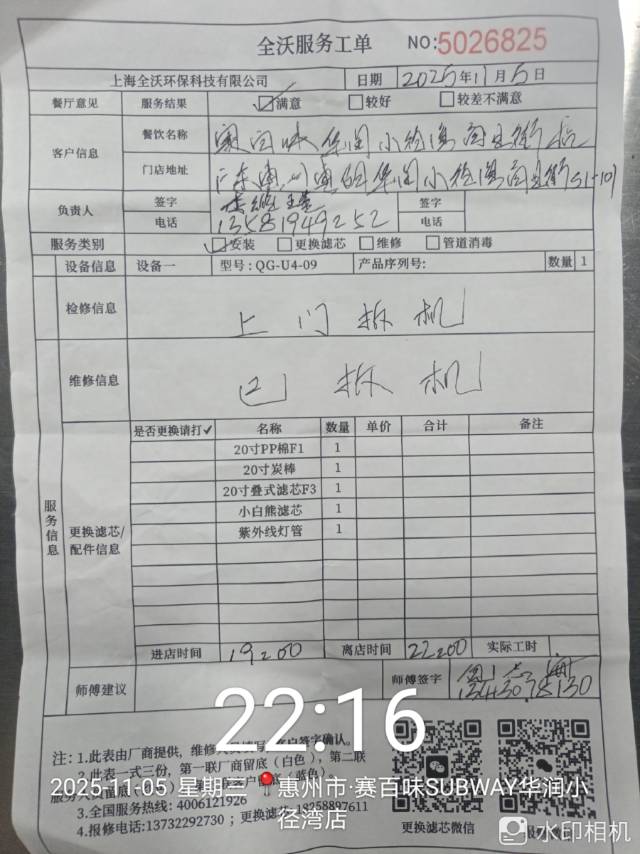 全沃服务工单 NO:5026825
上海全沃环保科技有限公司 日期 2025年11月5日
餐厅意见 服务结果 ☑满意 □较好 □较差不满意
客户信息 餐饮名称 华润小径湾商业街店
门店地址 广东惠州 华润小径湾商业街S1-101
负责人 签字 签字
电话 13581949252 电话
服务类别 ☑安装 □更换滤芯 □维修 □管道消毒
设备信息 设备一 型号:QG-U4-09 产品序列号: 数量 1
检修信息 上门拆机
维修信息 已拆机
服务信息
更换滤芯/配件信息
是否更换请打✓ 名称 数量 单价 合计 备注
20寸PP棉F1 1
20寸炭棒 1
20寸叠式滤芯F3 1
小白熊滤芯 1
紫外线灯管 1
进店时间 19:00 离店时间 22:00 实际工时
师傅建议 师傅签字
13430778130
22:16
注:1.此表由厂商提供,维修 填写 客户签字确认。
2.此表一式三份,第一联厂商留底(白色),第二联
(蓝色)。
2025-11-05 星期三 惠州市·赛百味SUBWAY华润小
径湾店
3.全国服务热线:4006121926
4.报修电话:13732292730;更换滤芯 18258897611
更换滤芯微信
水印相机